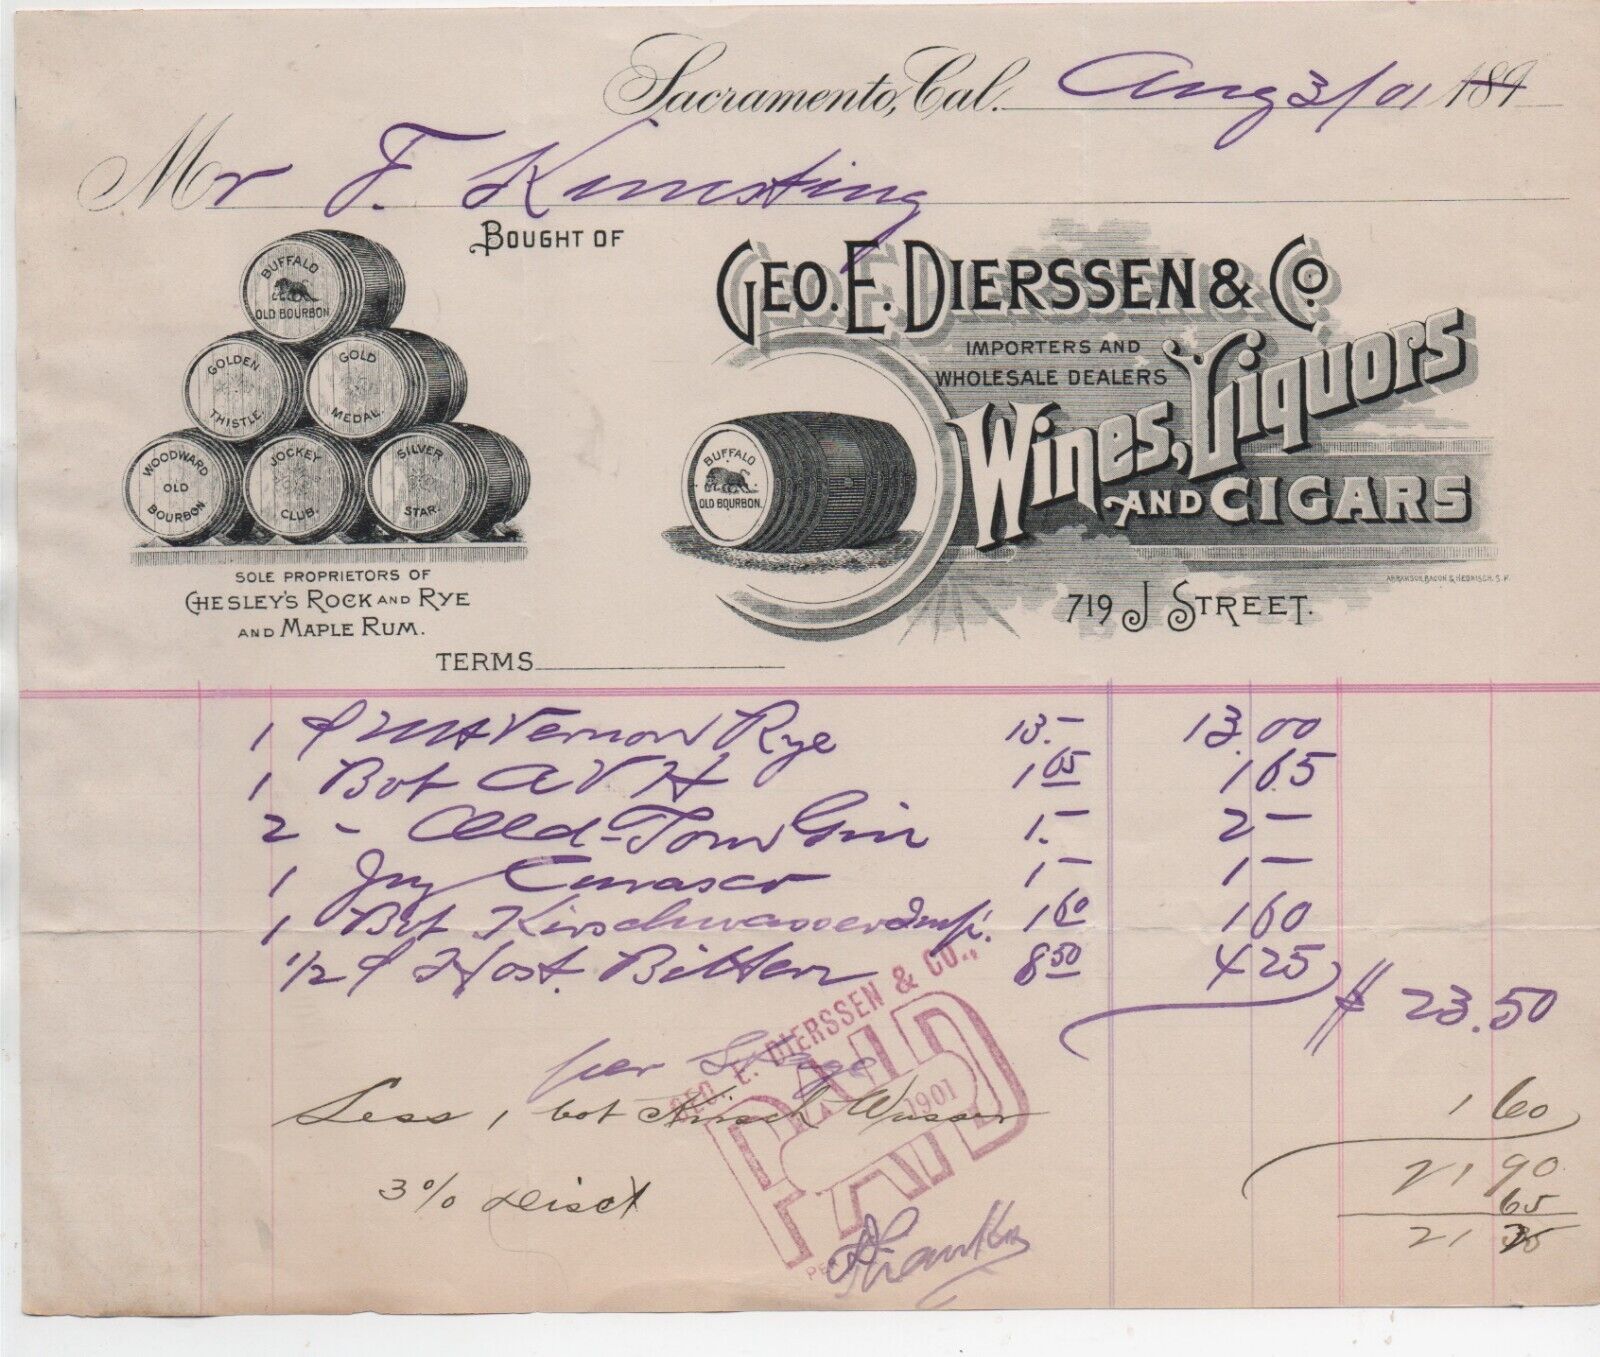 Sacramento, Cal. Aug 3/01 189
Mr F. Kunsting
BOUGHT OF
GEO. E. DIERSSEN & CO.
IMPORTERS AND
WHOLESALE DEALERS
Wines, Liquors
AND CIGARS
719 J STREET.
BUFFALO
OLD BOURBON.
BUFFALO
OLD BOURBON
GOLDEN
THISTLE.
GOLD
MEDAL.
WOODWARD
OLD
BOURBON
JOCKEY
CLUB.
SILVER
STAR.
SOLE PROPRIETORS OF
CHESLEY'S ROCK AND RYE
AND MAPLE RUM.
TERMS
1 Mt Vernon Rye 13.- 13.00
1 Bot AVH 1 65 1 65
2 - Old Tom Gin 1.- 2 -
1 Jug Curasco 1 - 1 -
1 Bot Kirschwasser Imp. 1 60 1 60
1/2 Host. Bitters 8 50 4 25
$ 23.50
per
Less 1 bot Kirsch Wasser 1 60
21 90
3% Disct 65
21 25
GEO. E. DIERSSEN & CO.,
PAID
1901
Thanks